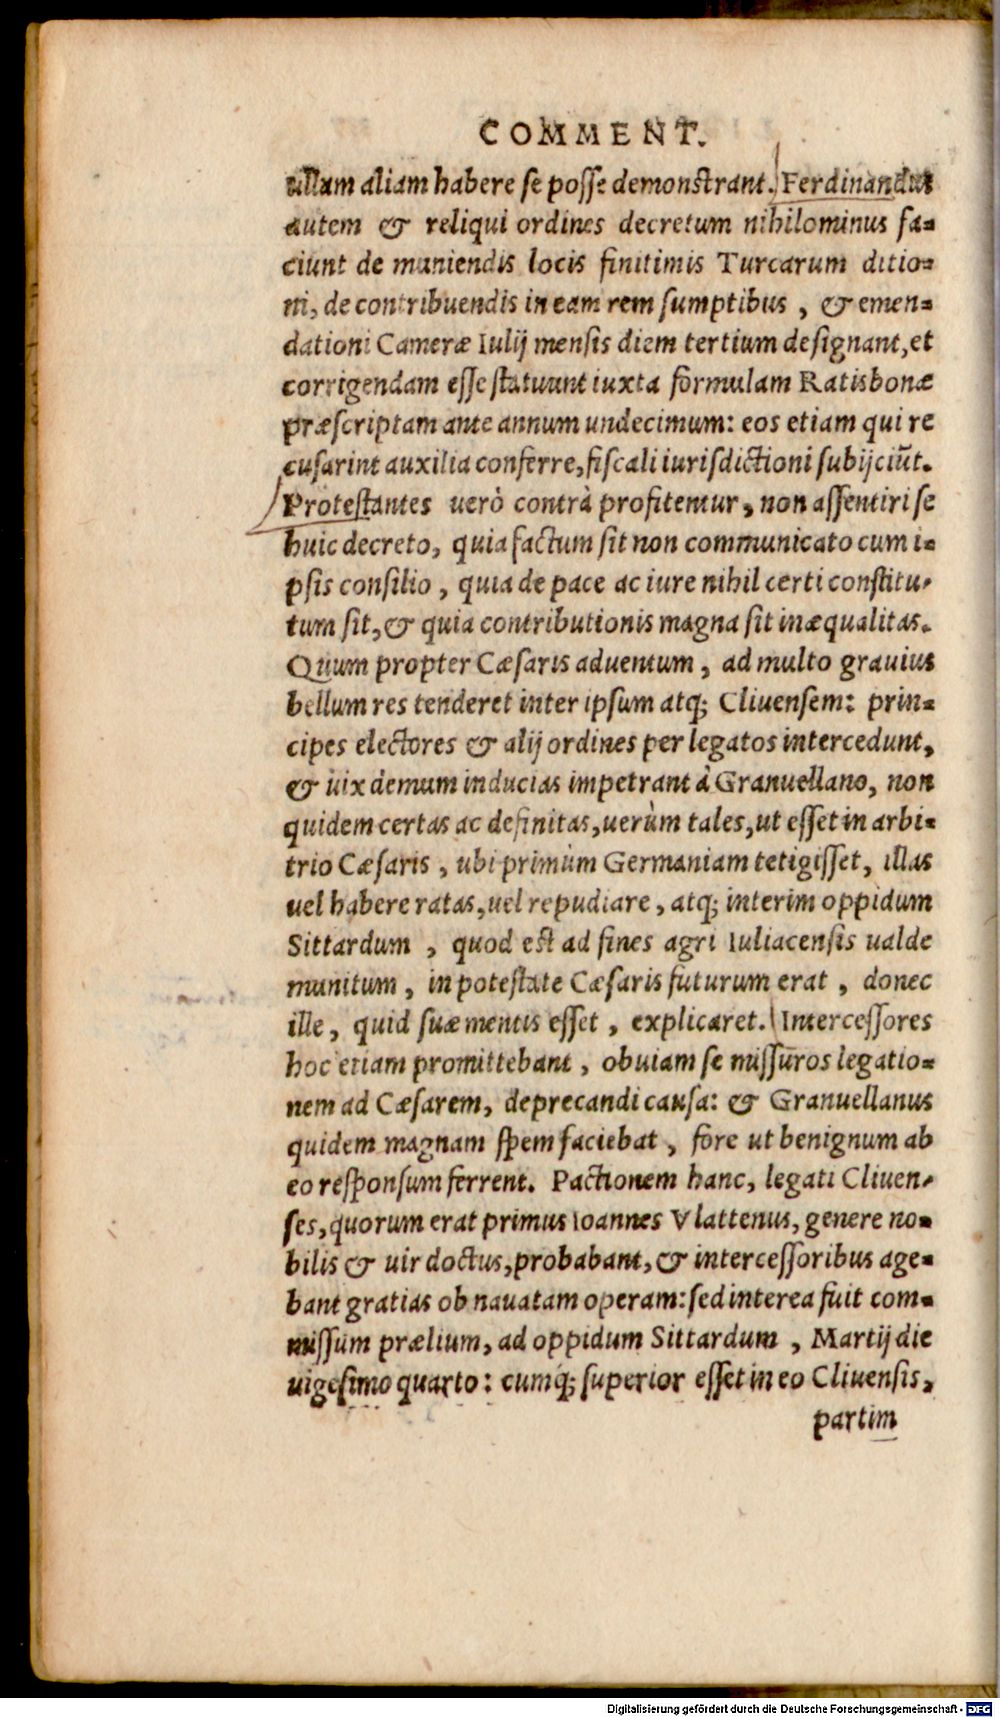 COMMENT.
ullam aliam habere se posse demonstrant. Ferdinandus
autem & reliqui ordines decretum nihilominus fa-
ciunt de muniendis locis finitimis Turcarum ditio-
ni, de contribuendis in eam rem sumptibus, & emen-
dationi Cameræ Iulij mensis diem tertium designant, et
corrigendam esse statuunt iuxta formulam Ratisbonæ
præscriptam ante annum undecimum: eos etiam qui re
cusarint auxilia conferre, fiscali iurisdictioni subijciũt.
Protestantes uerò contrà profitentur, non assentiri se
huic decreto, quia factum sit non communicato cum i-
psis consilio, quia de pace ac iure nihil certi constitu-
tum sit, & quia contributionis magna sit inæqualitas.
Quum propter Cæsaris aduentum, ad multo grauius
bellum res tenderet inter ipsum atq; Cliuensem: prin-
cipes electores & alij ordines per legatos intercedunt,
& uix demum inducias impetrant à Granuellano, non
quidem certas ac definitas, uerùm tales, ut esset in arbi-
trio Cæsaris, ubi primùm Germaniam tetigisset, illas
uel habere ratas, uel repudiare, atq; interim oppidum
Sittardum, quod est ad fines agri Iuliacensis ualde
munitum, in potestate Cæsaris futurum erat, donec
ille, quid suæ mentis esset, explicaret. Intercessores
hoc etiam promittebant, obuiam se missuros legatio-
nem ad Cæsarem, deprecandi causa: & Granuellanus
quidem magnam spem faciebat, fore ut benignum ab
eo responsum ferrent. Pactionem hanc, legati Cliuen-
ses, quorum erat primus Ioannes Vlattenus, genere no-
bilis & uir doctus, probabant, & intercessoribus age-
bant gratias ob nauatam operam: sed interea fuit com-
missum prælium, ad oppidum Sittardum, Martij die
uigesimo quarto: cumq́; superior esset in eo Cliuensis,
partim
Digitalisierung gefördert durch die Deutsche Forschungsgemeinschaft - DFG